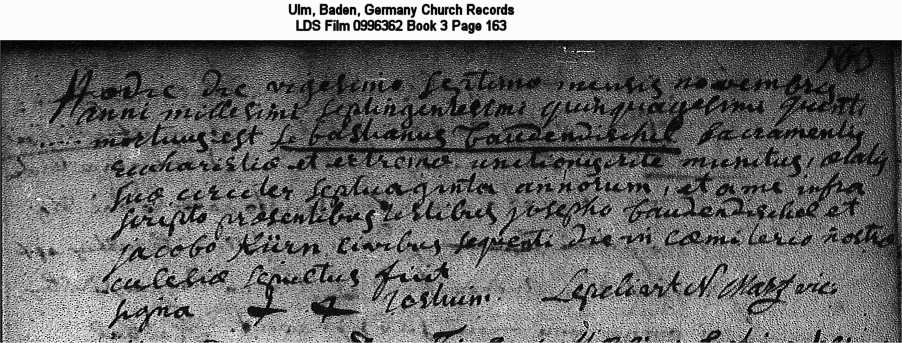 Ulm, Baden, Germany Church Records
LDS Film 0996362 Book 3 Page 163
163
Hodie die vigesimo septimo mensis novembris
anni millesimi septingentesimi quinquagesimi quinti
mortuus est Sebastianus baudendischel sacramentis
Eucharistiæ et extremæ unctionis rite munitus, ætatis
suæ circiter septuaginta annorum, et a me infra
scripto præsentibus testibus josepho baudendischel et
jacobo Kürn civibus sequenti die in cæmiterio nostræ
eclesiæ sepultus fuit
signa + + testium. N.